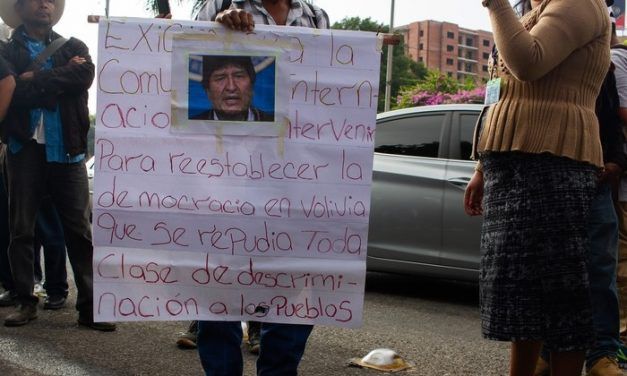 Exigi a la
Comu intern-
nacio intervenir
Para reestablecer la
democracia en Volivia
que se repudia Toda
Clase de descrimi-
nación a los Pueblos